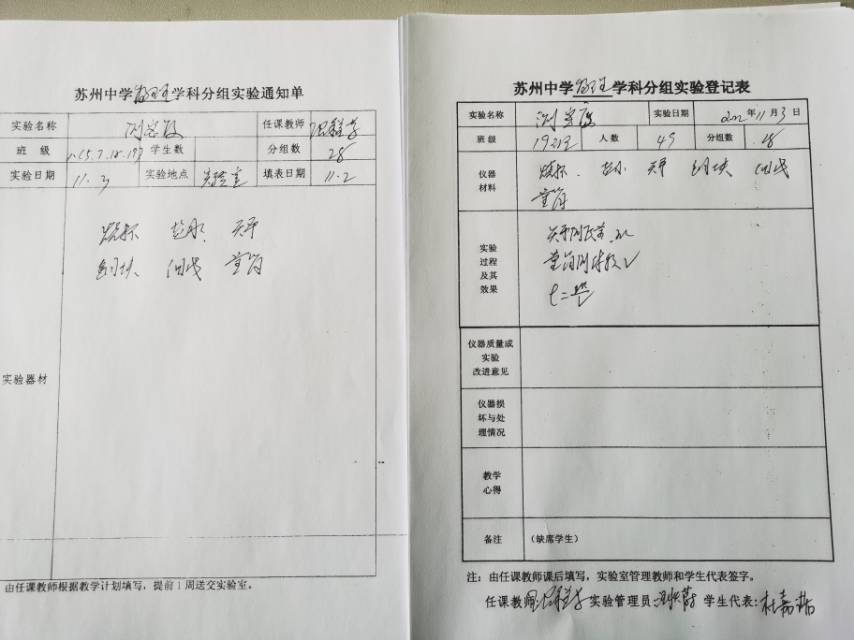 苏州中学物理学科分组实验通知单
实验名称 测密度 任课教师
班 级 学生数 分组数 28
实验日期 11.3 实验地点 实验室 填表日期 11.2
烧杯 盐水 天平
铜块 细线 量筒
实验器材
由任课教师根据教学计划填写，提前1周送交实验室。
苏州中学物理学科分组实验登记表
实验名称 测密度 实验日期 年11月3日
班 级 人数 45 分组数
仪器
材料
烧杯 盐水 天平 铜块 细线
量筒
实验
过程
及其
效果
天平测质量 m
量筒测体积V
仪器质量或
实验
改进意见
仪器损
坏与处
理情况
教学
心得
备注 （缺席学生）
注：由任课教师课后填写，实验室管理教师和学生代表签字。
任课教师 实验管理员: 学生代表: